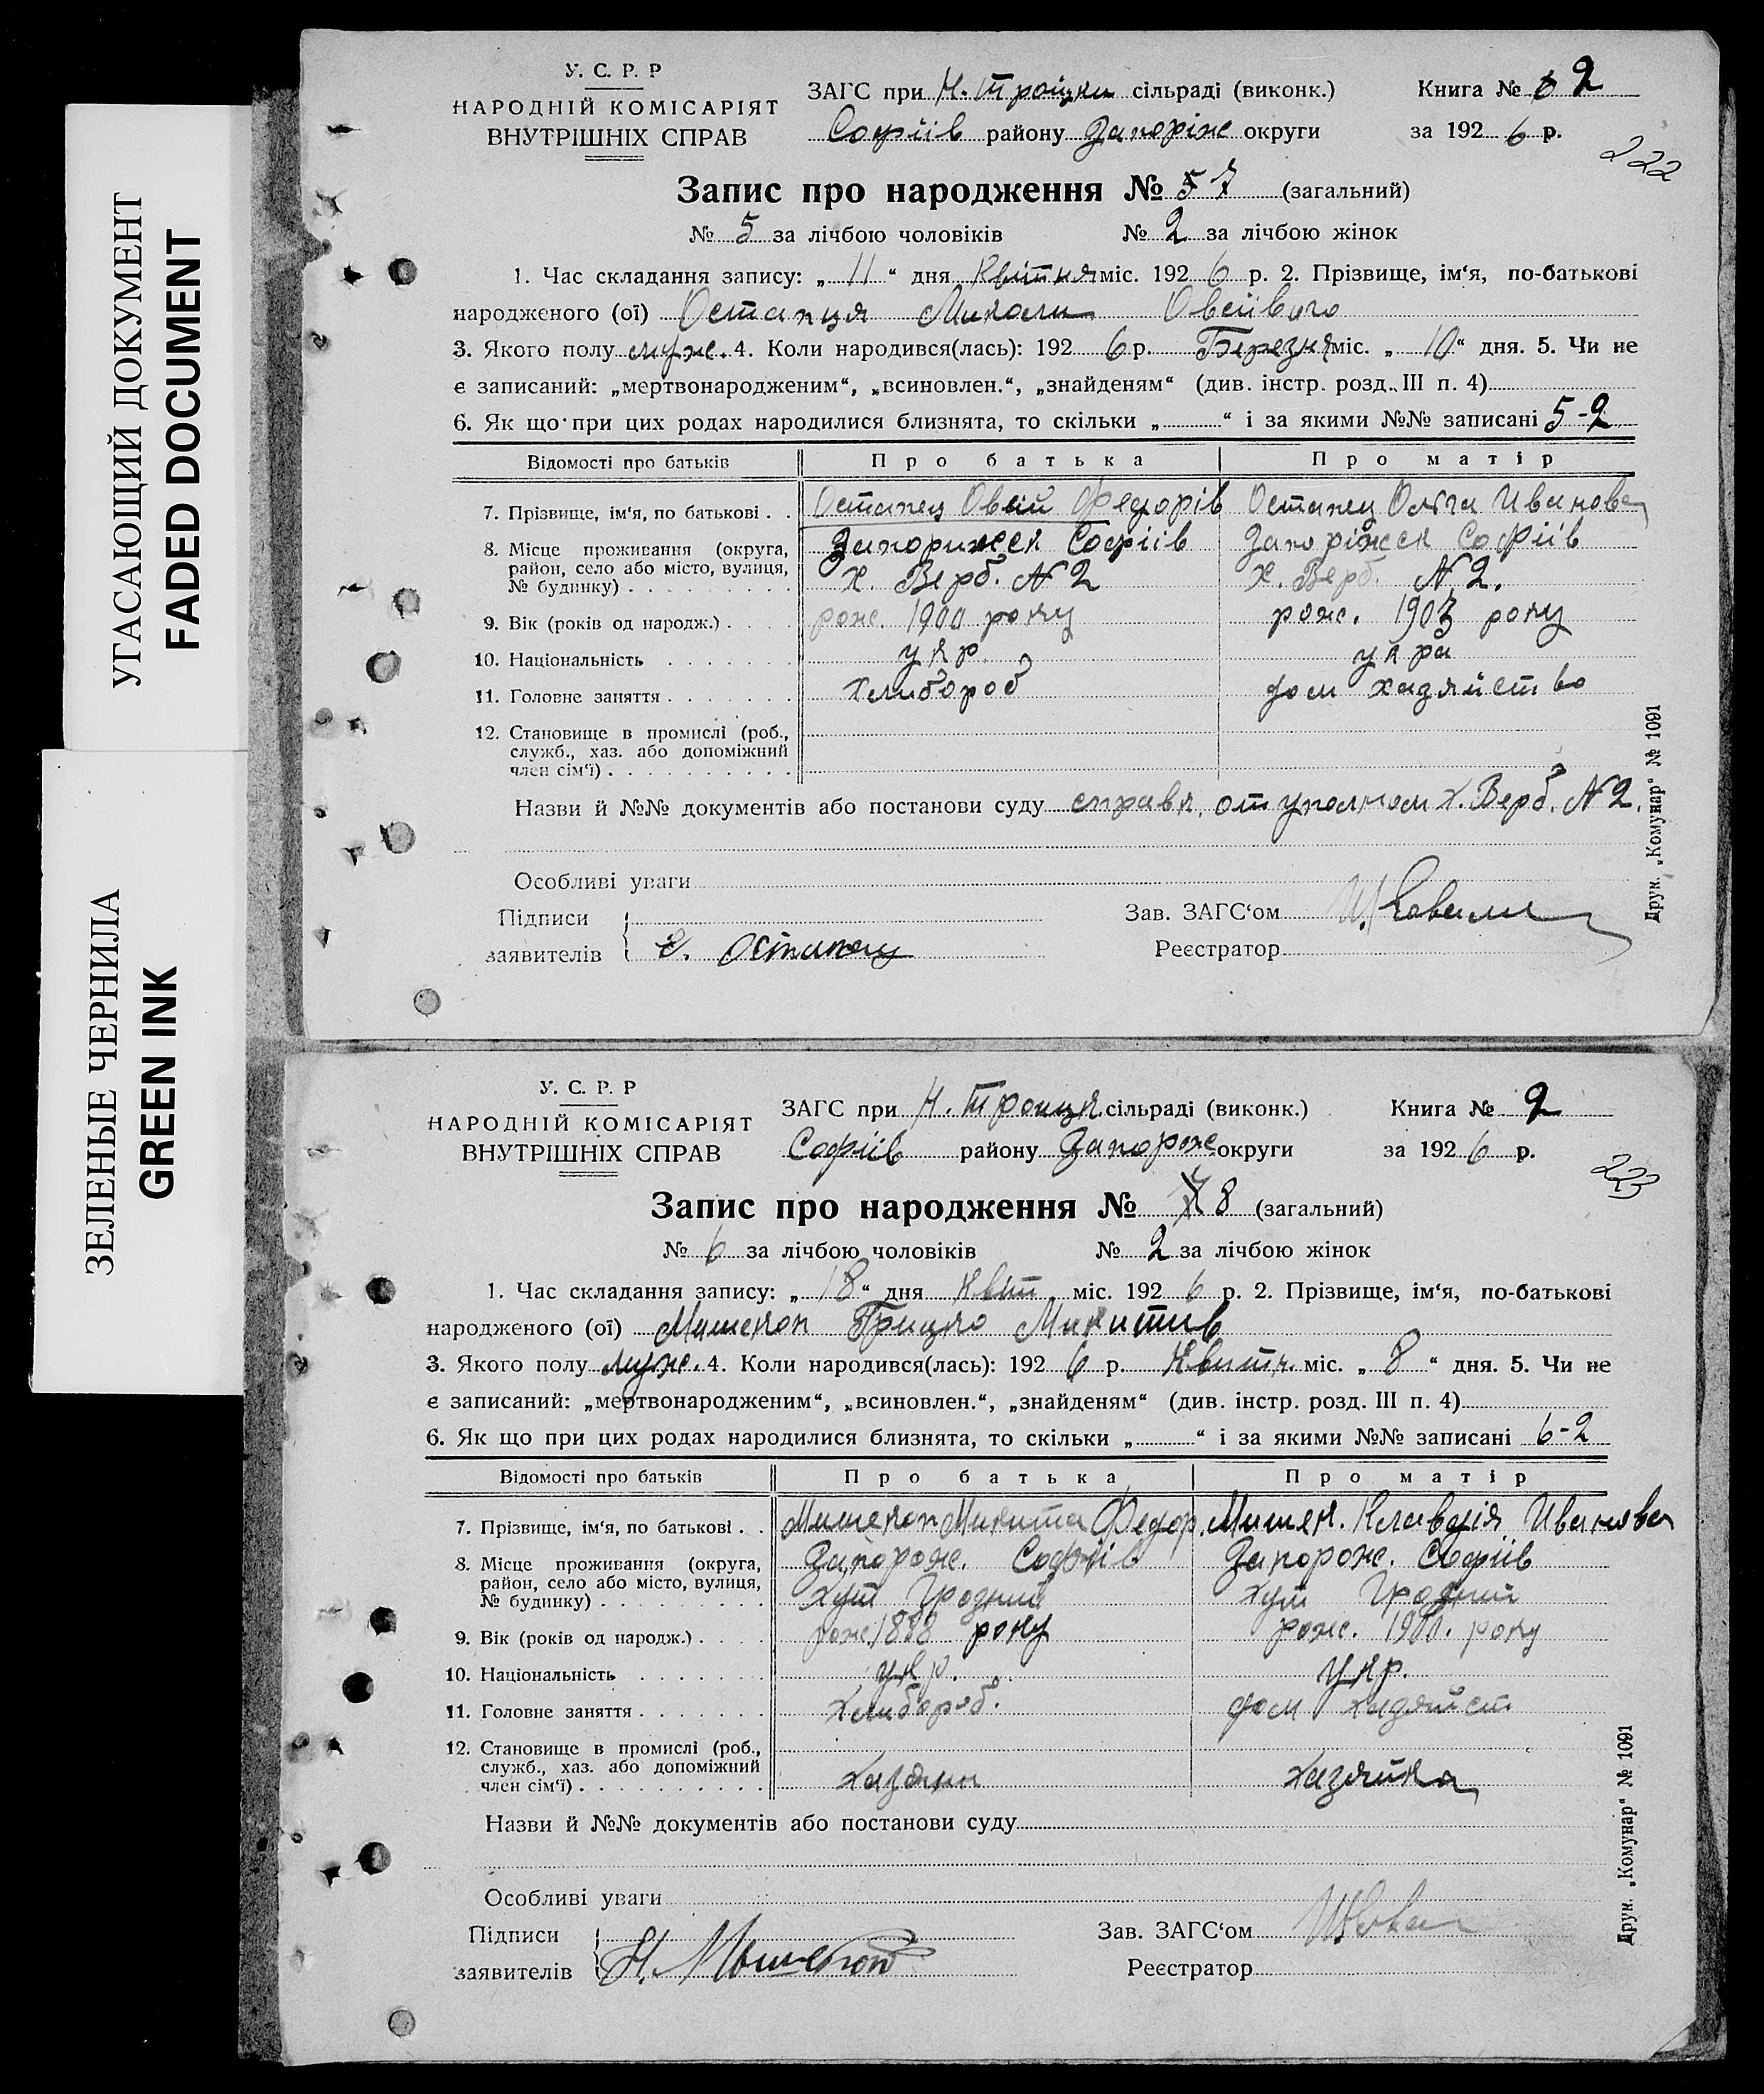 УГАСАЮЩИЙ ДОКУМЕНТ
FADED DOCUMENT
ЗЕЛЕНЫЕ ЧЕРНИЛА
GREEN INK
У. С. Р. Р
НАРОДНІЙ КОМІСАРІЯТ
ВНУТРІШНІХ СПРАВ
ЗАГС при Н. Троїцки сільраді (виконк.) Книга № 2
Софіів району Запоріж округи за 192 6 р.
222
Запис про народження № 7 (загальний)
№ 5 за лічбою чоловіків № 2 за лічбою жінок
1. Час складання запису: „ 11 “ дня Квітня міс. 192 6 р. 2. Прізвище, ім‘я, по-батькові
народженого (ої) Остапця Миколи Овсійвича
3. Якого полу муж. 4. Коли народився(лась): 192 6 р. Березня міс. „ 10 “ дня. 5. Чи не
є записаний: „мертвонародженим“, „всиновлен.“, „знайденям“ (див. інстр. розд. III п. 4)
6. Як що при цих родах народилися близнята, то скільки „ “ і за якими №№ записані 5-2
Відомості про батьків Про батька Про матір
7. Прізвище, ім‘я, по батькові . . Остапец Овсій Федорів Остапец Ольга Иванова
8. Місце проживання (округа, Запорижск Софіів Запоріжск Софіів
район, село або місто, вулиця,
№ будинку) Х. Верб. N 2 Х. Верб. N 2.
9. Вік (років од народж.) рож. 1900 року рож. 1903 року
10. Національність укр. укра
11. Головне заняття хлибороб дом хазяйство
12. Становище в промислі (роб.,
служб., хаз. або допоміжний
член сім‘ї)
Назви й №№ документів або постанови суду справк. от уполном х. Верб. N 2.
Особливі уваги
Підписи
заявителів Остапец
Зав. ЗАГС‘ом Коваль
Реєстратор
Друк. „Комунар“ № 1091
У. С. Р. Р
НАРОДНІЙ КОМІСАРІЯТ
ВНУТРІШНІХ СПРАВ
ЗАГС при Н. Троицк. сільраді (виконк.) Книга № 2
Софіів району Запорож округи за 192 6 р.
223
Запис про народження № 8 (загальний)
№ 6 за лічбою чоловіків № 2 за лічбою жінок
1. Час складання запису: „ 18 “ дня квіт міс. 192 6 р. 2. Прізвище, ім‘я, по-батькові
народженого (ої) Мишекоп Грицко Микитив
3. Якого полу муж. 4. Коли народився(лась): 192 6 р. Квитн. міс. „ 8 “ дня. 5. Чи не
є записаний: „мертвонародженим“, „всиновлен.“, „знайденям“ (див. інстр. розд. III п. 4)
6. Як що при цих родах народилися близнята, то скільки „ “ і за якими №№ записані 6-2
Відомості про батьків Про батька Про матір
7. Прізвище, ім‘я, по батькові . . Мишекоп Микита Федор. Мишек. Клавдія Иванова
8. Місце проживання (округа, Запорож. Софіів Запорож. Софіів
район, село або місто, вулиця,
№ будинку) хут хут
9. Вік (років од народж.) рож. 1898 року рож. 1900. року
10. Національність укр. укр.
11. Головне заняття хлибороб. дом хазяйст
12. Становище в промислі (роб.,
служб., хаз. або допоміжний
член сім‘ї) хазяин хазяйка
Назви й №№ документів або постанови суду
Особливі уваги
Підписи
заявителів Н. Мишекоп
Зав. ЗАГС‘ом
Реєстратор
Друк. „Комунар“ № 1091